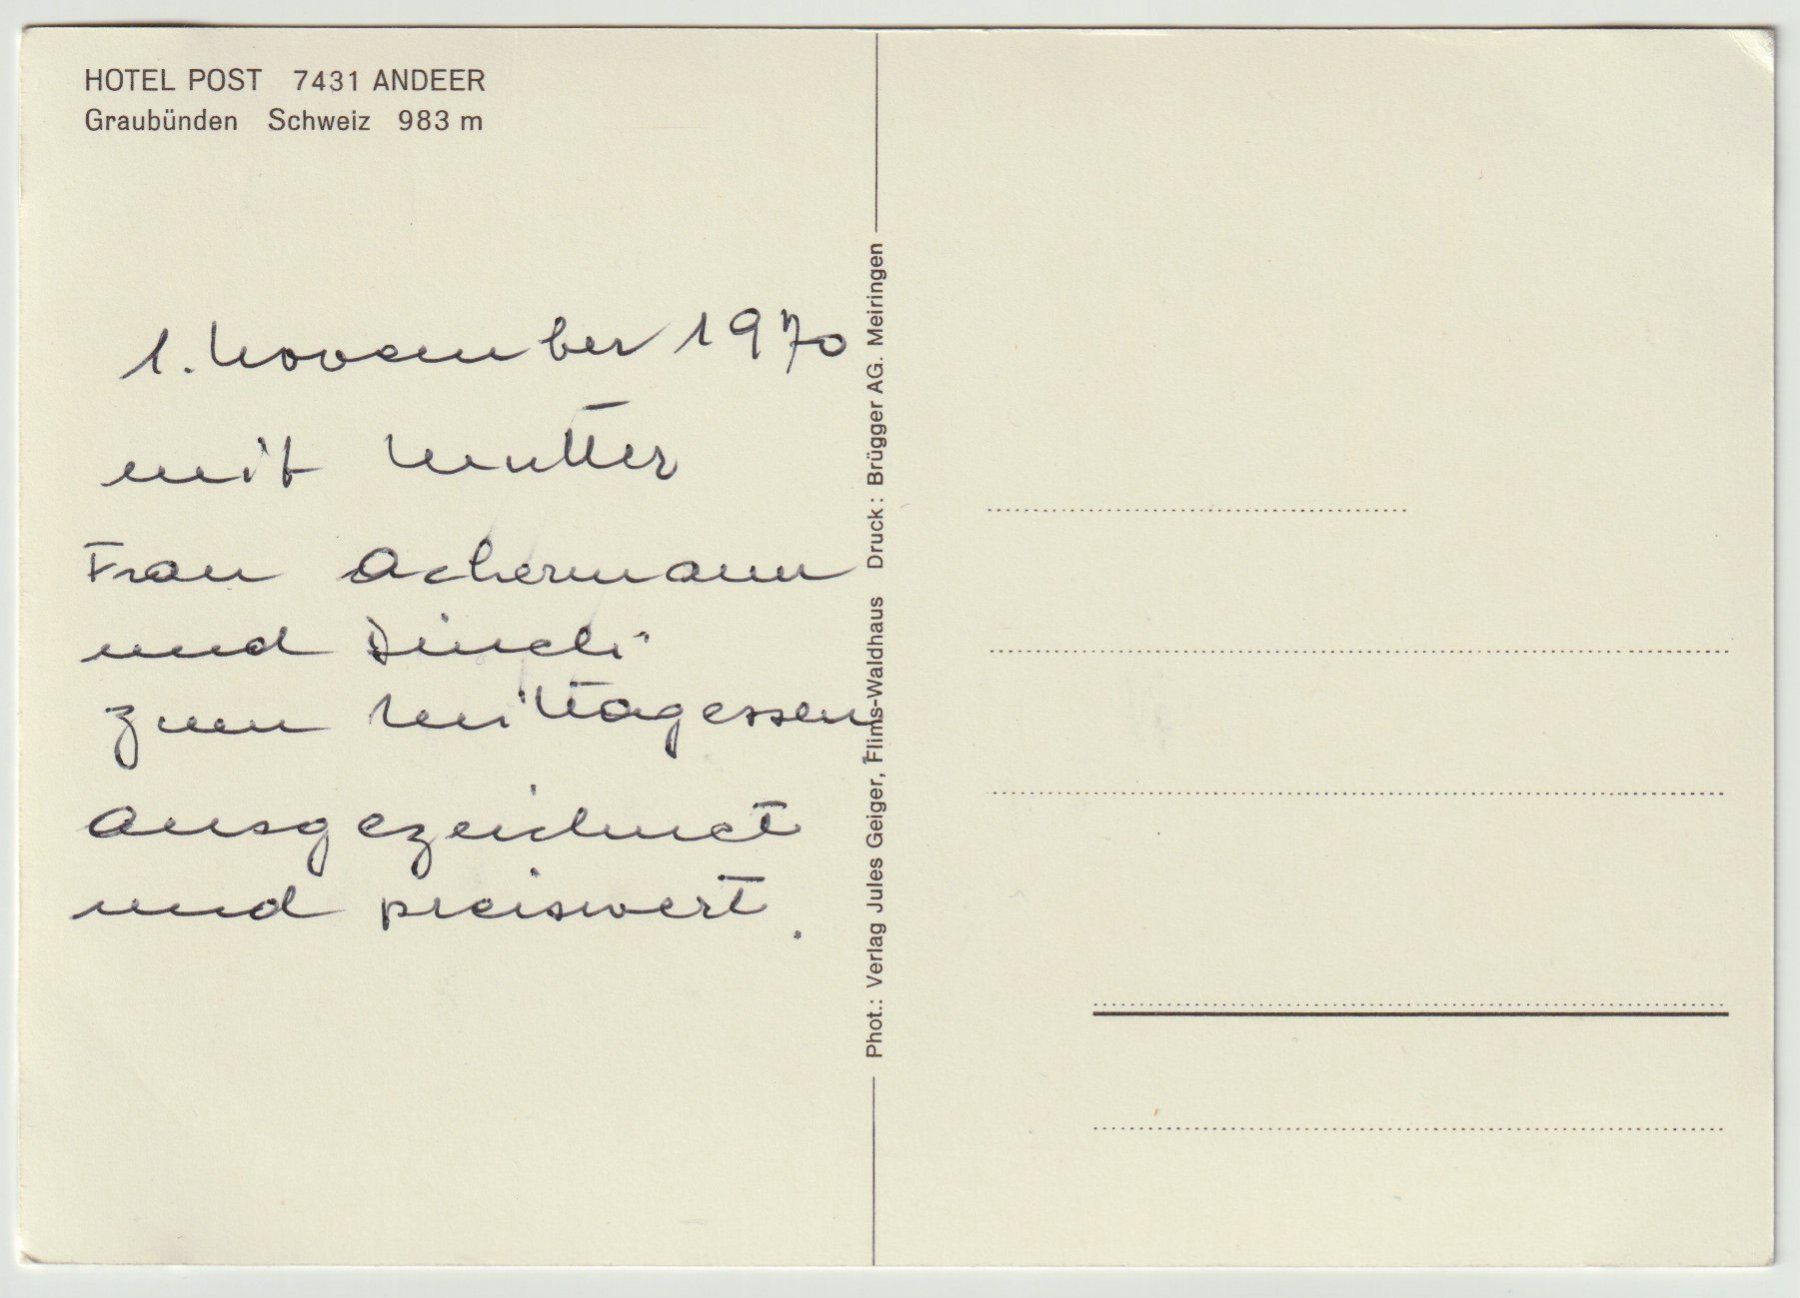 HOTEL POST 7431 ANDEER
Graubünden Schweiz 983 m
1. November 1970
mit Mutter
Frau Achermann
und
zum Mittagessen
ausgezeichnet
und preiswert.
Phot.: Verlag Jules Geiger, Flims-Waldhaus Druck: Brügger AG. Meiringen